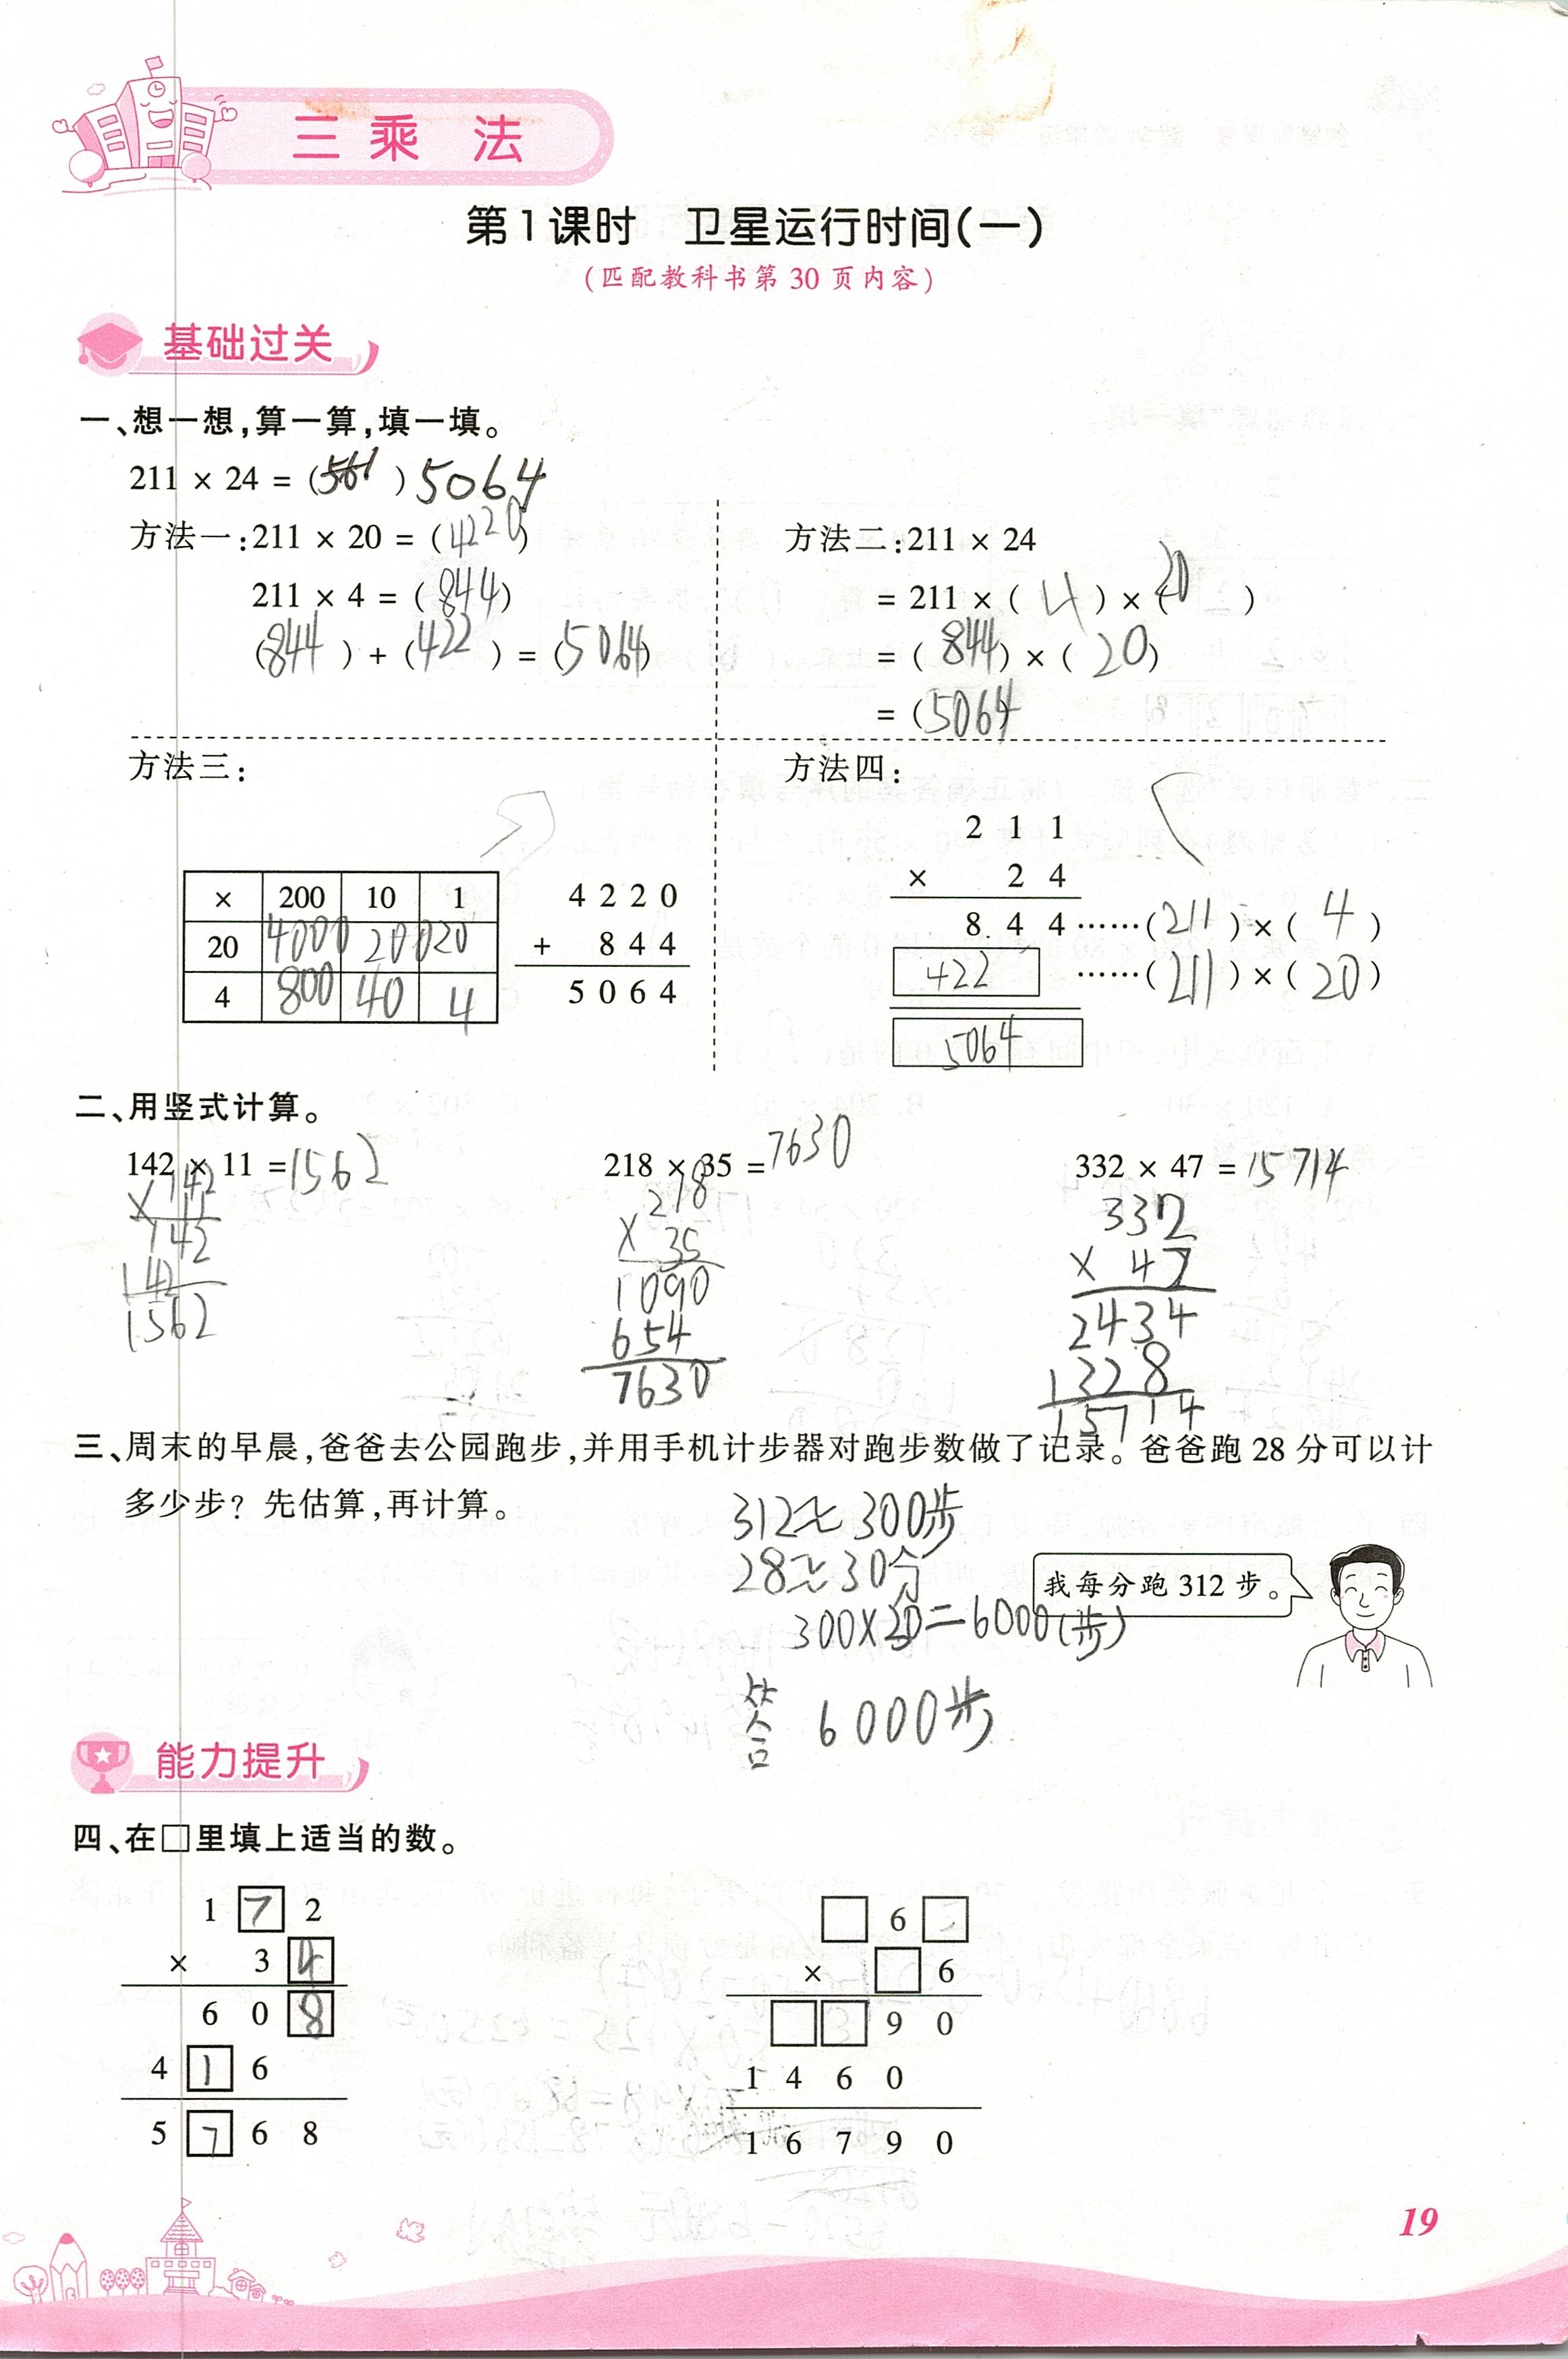 三 乘 法
第1课时 卫星运行时间(一)
(匹配教科书第30页内容)
基础过关
一、想一想,算一算,填一填。
211 × 24 = ( ) 5064
方法一:211 × 20 = (4220)
211 × 4 = (844)
(844) + (422) = (5064)
方法二:211 × 24
= 211 × (4) × (20)
= (844) × (20)
= (5064)
方法三:
× 200 10 1
20 4000 200 20
4 800 40 4
4220
+ 844
5064
方法四:
211
× 24
844……(211) × (4)
422 ……(211) × (20)
5064
二、用竖式计算。
142 × 11 = 1562
142
× 11
142
142
1562
218 × 35 = 7630
218
× 35
1090
654
7630
332 × 47 = 15714
332
× 47
2434
1328
15714
三、周末的早晨,爸爸去公园跑步,并用手机计步器对跑步数做了记录。爸爸跑28分可以计
多少步?先估算,再计算。
312≈300步
28≈30分
300×20=6000(步)
答 6000步
我每分跑312步。
能力提升
四、在□里填上适当的数。
1 7 2
× 3 4
6 0 8
4 1 6
5 7 6 8
□ 6 □
× □ 6
□ □ 9 0
1 4 6 0
1 6 7 9 0
19